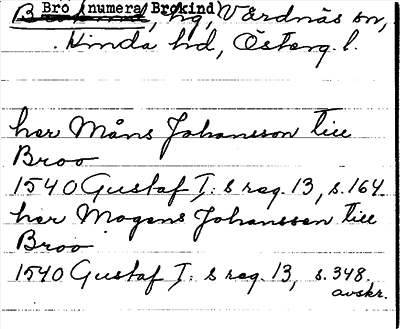 Bro (numera Brokind)
Brokind, hg, Vårdnäs sn,
Kinda hd, Österg. l.
her Måns Johansson till
Broo
1540 Gustaf I: s reg. 13, s. 164.
her Mogens Johanssen till
Broo
1540 Gustaf I: s reg. 13, s. 348.
avskr.